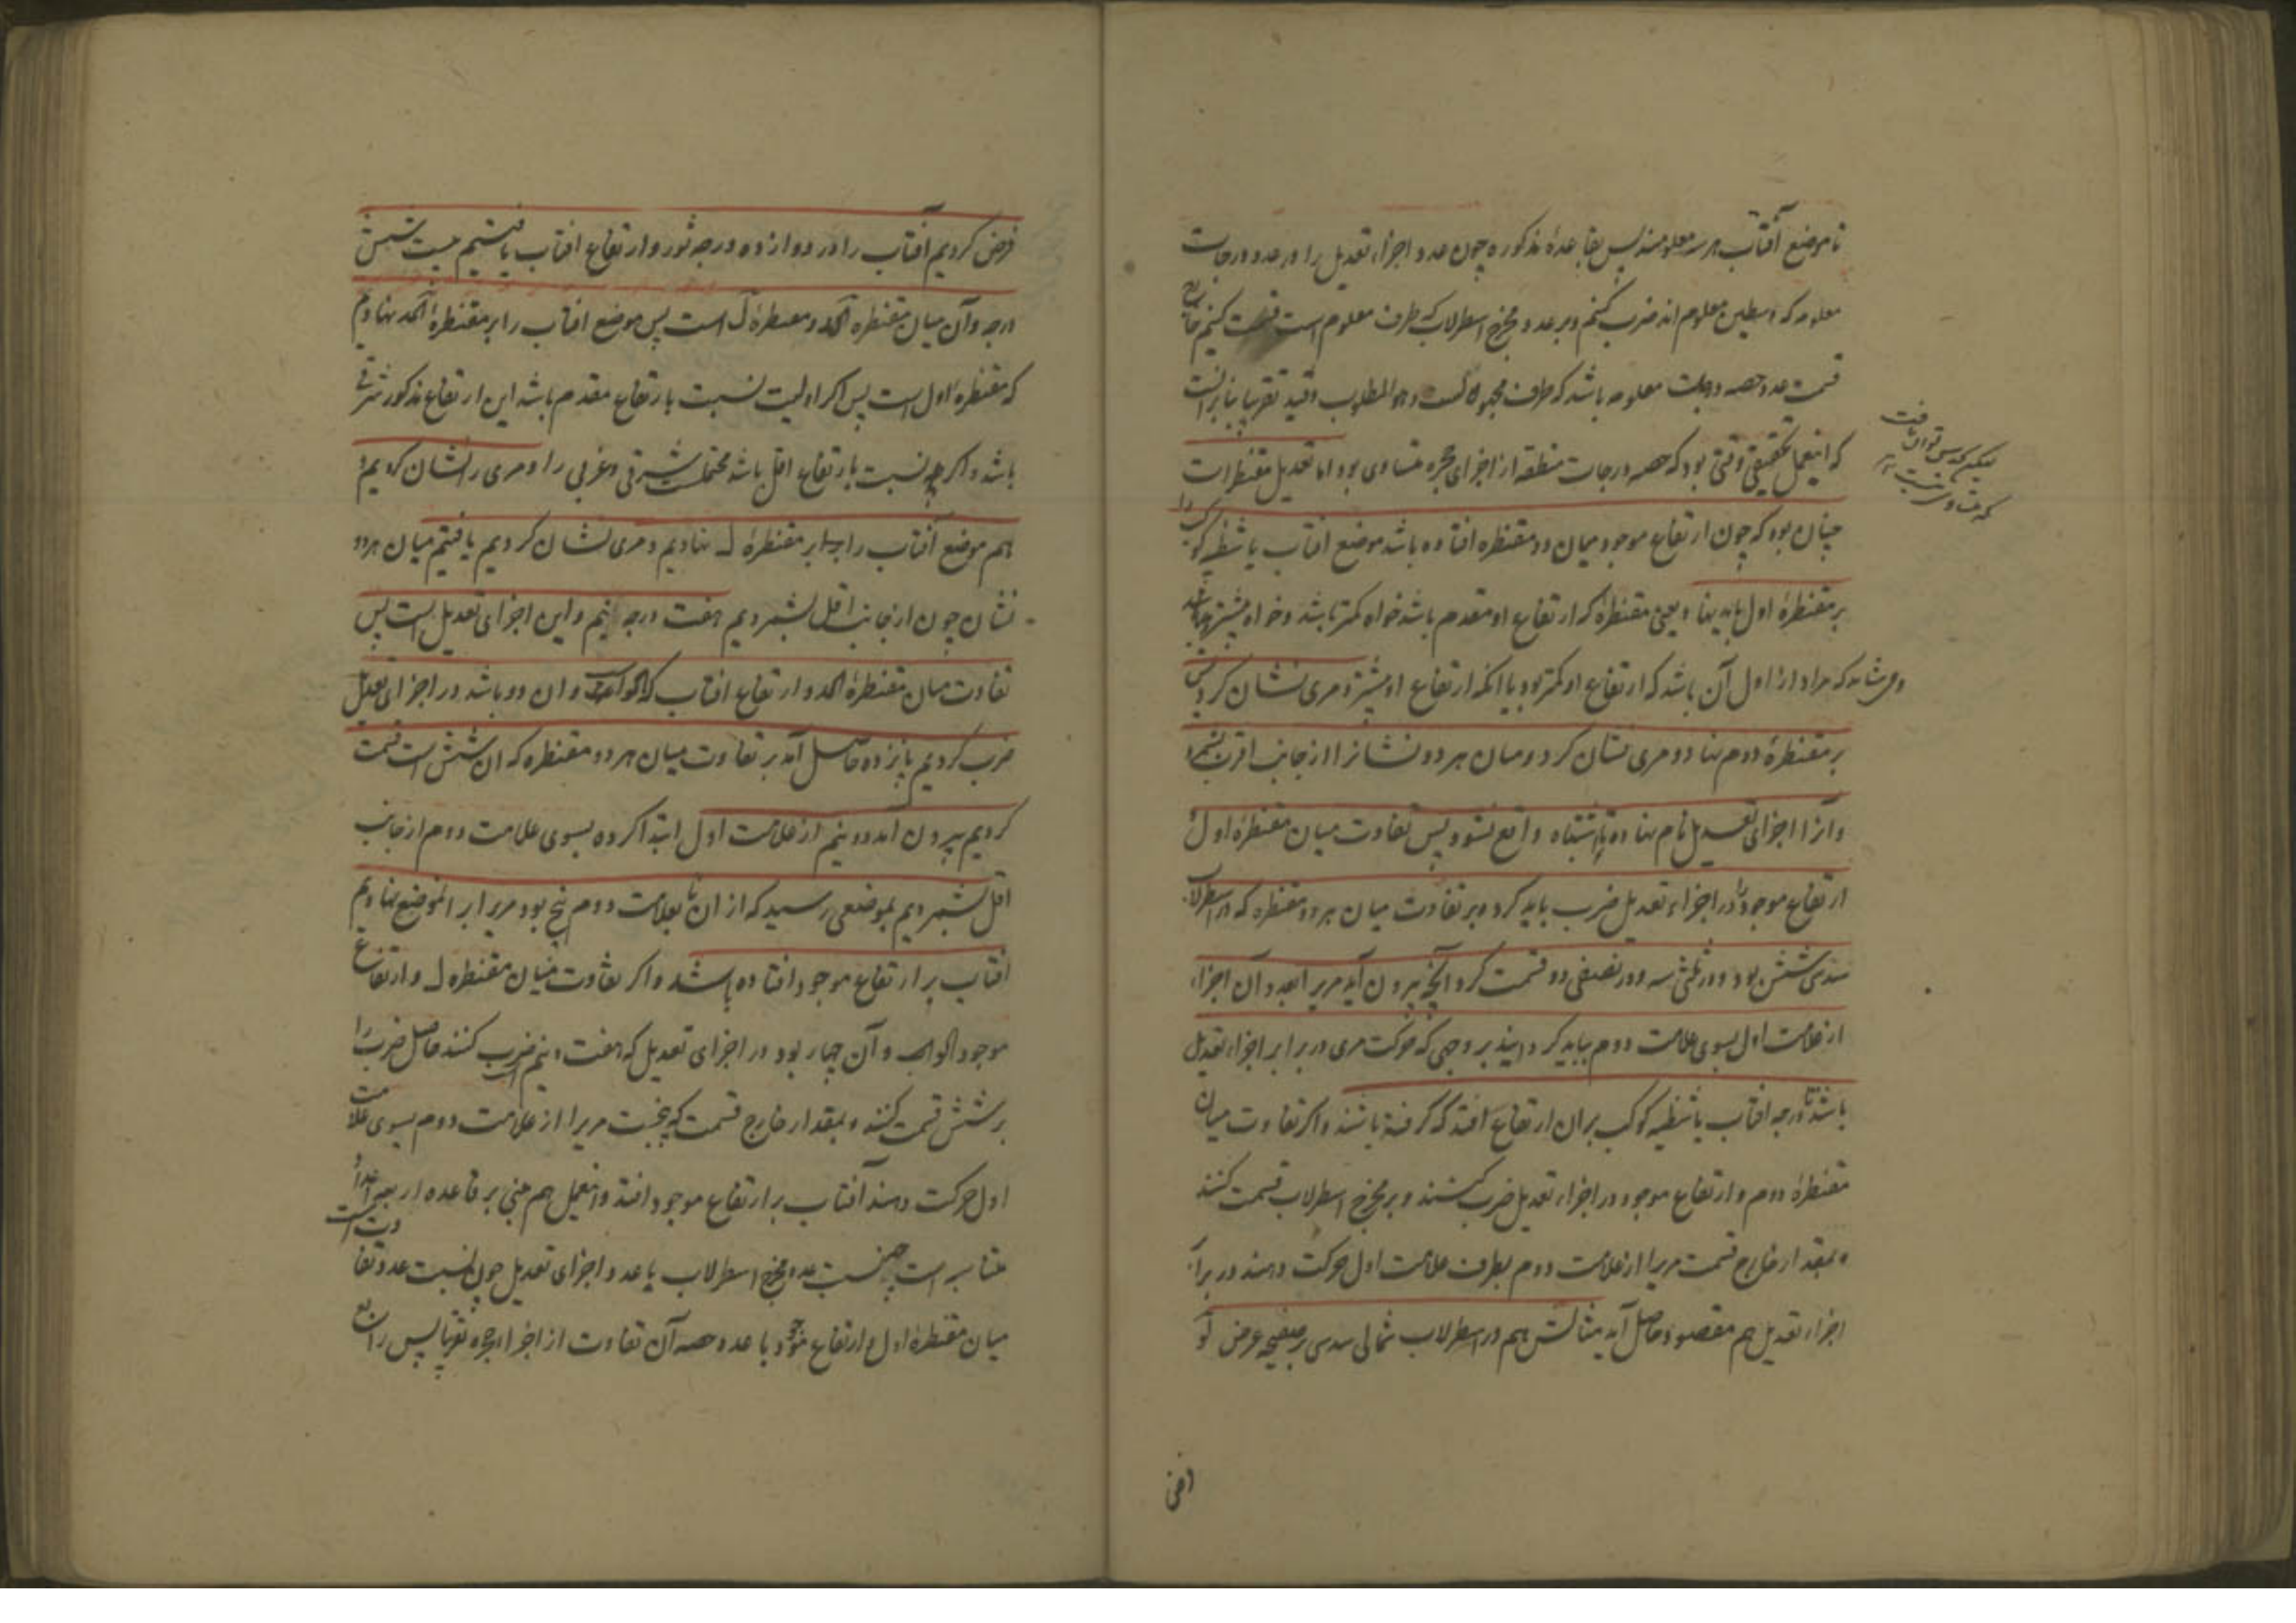 تا موضع آفتاب هر سه معلومند پس بقاعدهٔ مذکوره چون عدد اجزاء تعدیل را در عدد درجات
معلومه که وسطین معلوم اند ضرب کنیم و بر عدد مخرج اسطرلاب که طرف معلوم است قسمت کنیم خارج
قسمت عدد حصه درجات معلومه باشد که طرف مجهول است و هو المطلوب و قید تقریبا بنا برانست
که اینعمل تحقیقی وقتی بود که حصه درجات منطقه از اجزای حجره متساوی بود اما تعدیل مقنطرات
چنان بود که چون ارتفاع موجود میان دو مقنطره افتاده باشد موضع آفتاب یا شظیه کوکب را
بر مقنطرهٔ اول باید نهاد یعنی مقنطرهٔ که ارتفاع او مقدم باشد خواه کمتر باشد و خواه بیشتر
که مراد از اول آن باشد که ارتفاع او کمتر بود یا آنکه ارتفاع او بیشتر و مری نشان کرد پس
بر مقنطرهٔ دوم نهاد و مری نشان کرد و میان هر دو نشانرا از جانب اقرب بشمرد
و آنرا اجزای تعدیل نام نهاده تا اشتباه واقع نشود پس تفاوت میان مقنطرهٔ اول و
ارتفاع موجود را در اجزاء تعدیل ضرب باید کرد و بر تفاوت میان هر دو مقنطره که در اسطرلاب
سدسی شش بود و در ثلثی سه و در نصفی دو قسمت کرد آنچه بیرون آید مریرا بعدد آن اجزاء
از علامت اول بسوی علامت دوم بباید کردانید بر وجهی که حرکت مری در برابر اجزاء تعدیل
باشد تا درجه آفتاب یا شظیه کوکب بران ارتفاع افتد که کرفته باشند و اکر تفاوت میان
مقنطرهٔ دوم و ارتفاع موجود در اجزاء تعدیل ضرب کنند و بر مخرج اسطرلاب قسمت کنند
و بمقدار خارج قسمت مریرا از علامت دوم بطرف علامت اول حرکت دهند در برابر
اجزاء تعدیل هم مقصود حاصل آید مثالش هم در اسطرلاب شمالی سدسی بر صفیحه عرض لو
که متساوی نیست
فرض کردیم آفتاب را در دوازده درجه ثور و ارتفاع افتاب یافتیم بیست شش
درجه و آن میان مقنطره کد و مقنطرهٔ ل است پس موضع افتاب را بر مقنطرهٔ کد نهادیم
که مقنطره اول است پس اکر اولیت نسبت بارتفاع مقدم باشد این ارتفاع مذکور شرقی
باشد و اکر چه نسبت بارتفاع اقل باشد محتملست شرقی و غربی را و مری را نشان کردیم و
هم موضع آفتاب را بر مقنطرهٔ ل نهادیم و مری نشان کردیم یافتیم میان هر دو
نشان چون از جانب اقل بشمردیم هفت درجه و نیم و این اجزای تعدیل است پس
تفاوت میان مقنطرهٔ کد و ارتفاع افتاب که کو است و ان دو باشد در اجزای تعدیل
ضرب کردیم پانزده حاصل آمد بر تفاوت میان هر دو مقنطره که ان شش است قسمت
کردیم بیرون آمد دو و نیم از علامت اول ابتدا کرده بسوی علامت دوم از جانب
اقل بشمردیم بموضعی رسید که از ان تا بعلامت دوم پنج بود مریرا بر انموضع نهادیم
افتاب بر ارتفاع موجود افتاده باشد و اکر تفاوت میان مقنطره ل و ارتفاع
موجود و آن چهار بود در اجزای تعدیل که هفت و نیم است ضرب کنند حاصل ضرب را
بر شش قسمت کنند و بمقدار خارج قسمت که پنجست مریرا از علامت دوم بسوی علامت
اول حرکت دهند آفتاب بر ارتفاع موجود افتد و اینعمل هم مبنی بر قاعده اربعه اعداد
متناسبه است چه نسبت عدد مخرج اسطرلاب با عدد اجزای تعدیل چون نسبت عدد تفاوت است
میان مقنطرهٔ اول و ارتفاع موجود با عدد حصه آن تفاوت از اجزاء حجره تقریبا پس رابع